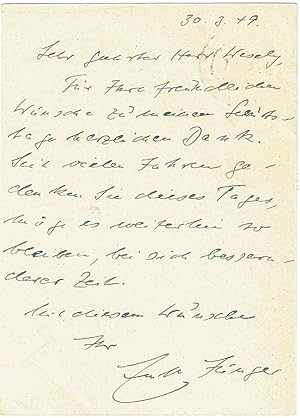 30. 3. 49.
Sehr geehrter Herr Wesely,
Für Ihre freundlichen
Wünsche zu meinem Geburts-
tage herzlichen Dank.
Seit vielen Jahren ge-
denken Sie dieses Tages,
möge es weiterhin so
bleiben, bei sich bessern-
derer Zeit.
Mit diesem Wunsche
Ihr
Ernst Jünger